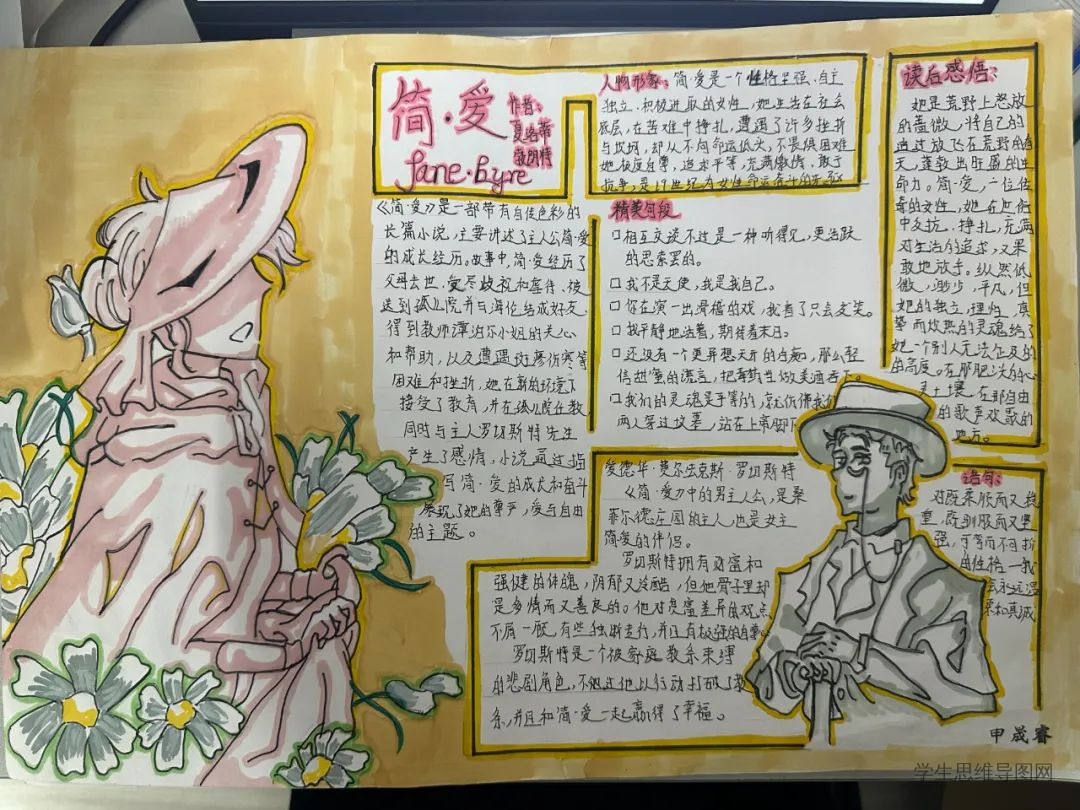 简·爱
作者:
夏洛蒂
勃朗特
Jane·Eyre
人物形象:简·爱是一个性格坚强、自主
独立、积极进取的女性,她生活在社会
底层,在苦难中挣扎,遭遇了许多挫折
与坎坷,却从不向命运低头,不畏惧困难
她极度自尊,追求平等,充满激情,敢于
抗争,是19世纪
《简·爱》是一部带有自传色彩的
长篇小说,主要讲述了主人公简·爱
的成长经历。故事中,简·爱经历了
父母去世,受尽歧视和虐待、被
送到孤儿院并与海伦结成好友,
得到教师谭泊尔小姐的关心
和帮助,以及遭遇斑疹伤寒等
困难和挫折,她在新的环境下
接受了教育,并在孤儿院任教
同时与主人罗切斯特先生
产生了感情,小说通过描
写简·爱的成长和奋斗
展现了她的尊严,爱与自由
的主题。
精美句段
□相互交谈不过是一种听得见,更活跃
的思索罢的。
□我不是天使,我是我自己。
□你在演一出滑稽的戏,我看了只会发笑。
□我平静地活着,期待着末日。
□还没有一个更异想天开的白痴,那么轻
信甜蜜的谎言,把毒药当做美酒吞下。
□我们的灵魂是平等的,就仿佛我们
两人穿过坟墓,站在上帝脚下
爱德华·费尔法克斯·罗切斯特
《简·爱》中的男主人公,是桑
菲尔德庄园的主人也是女主
简爱的伴侣。
罗切斯特拥有财富和
强健的体魄,阴郁又冷酷,但他骨子里却
是多情而又善良的。他对贫富差异的观点
不屑一顾,有些独断专行,并且有极强的自尊。
罗切斯特是一个被家庭教条束缚
的悲剧角色,不过他以行动打破了教
条,并且和简·爱一起赢得了幸福。
读后感悟:
她是荒野上怒放
的蔷薇,将自己的
通过放飞在荒野的春
天,蓬勃出旺盛的生
命力。简·爱,一位传
奇的女性,她在世俗
中反抗、挣扎,充满
对生活的追求,又果
敢地放手。纵然低
微,渺少,平凡,但
她的独立,理性,真
挚而炽热的灵魂给了
她一个别人无法企及的
的高度。在那肥沃的心
灵土壤,在那自由
的歌声欢歌的
地方。
语句:
对既柔顺而又稳
重,既驯服而又坚
强,可弯而不可折
的性格—我
会永远温
柔和真诚
申晟睿
学生思维导图网